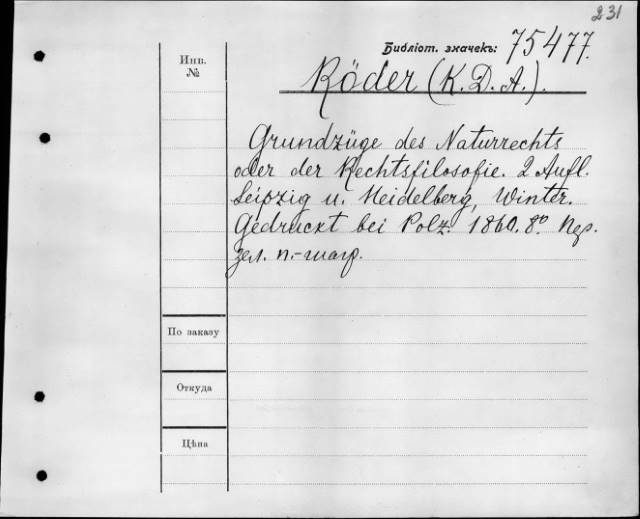 231
Библіот. значекъ: 75477.
Инв.
№
Röder (K. D. A.).
Grundzüge des Naturrechts
oder der Rechtsfilosofie. 2 Aufl.
Leipzig u. Heidelberg, Winter.
Gedruckt bei Polz. 1860. 8º. Пер.
зел. п.-шагр.
По заказу
Откуда
Цѣна